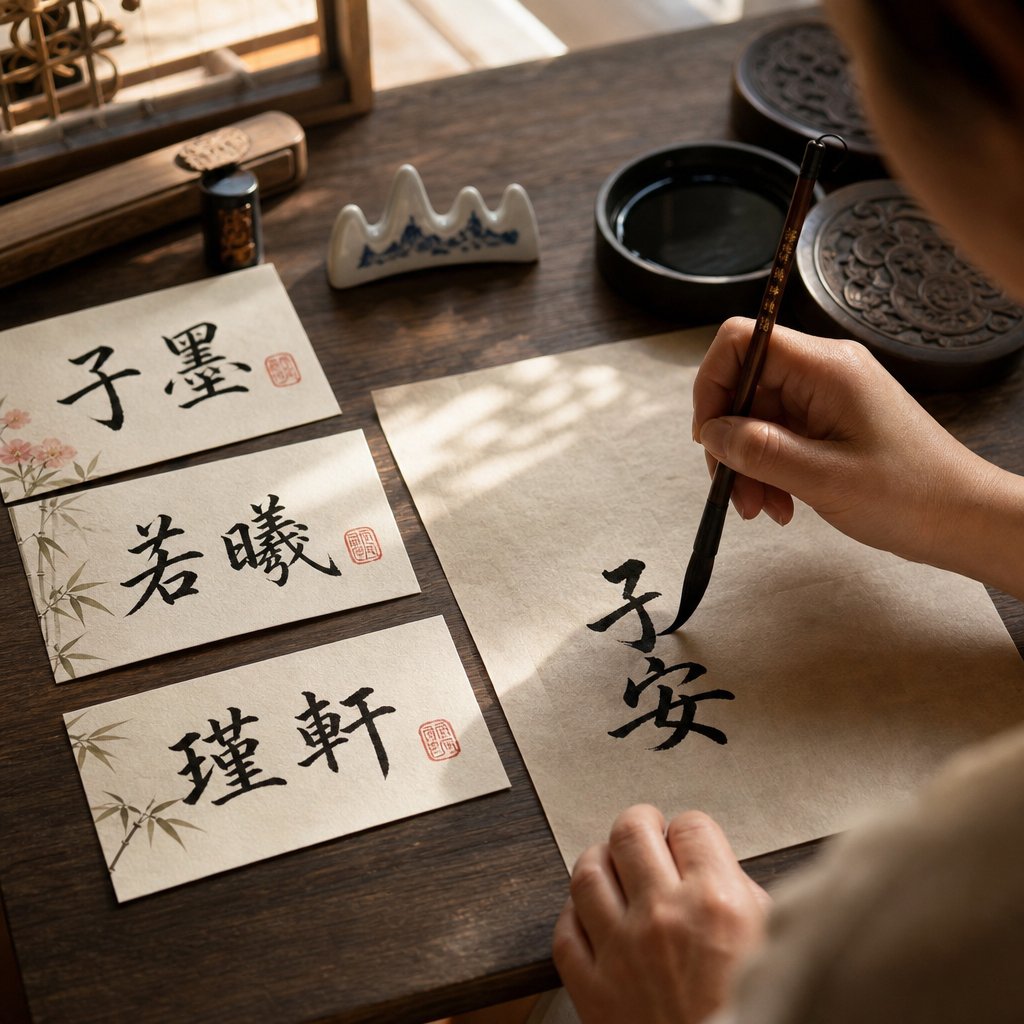 子墨
若曦
瑾軒
子
安